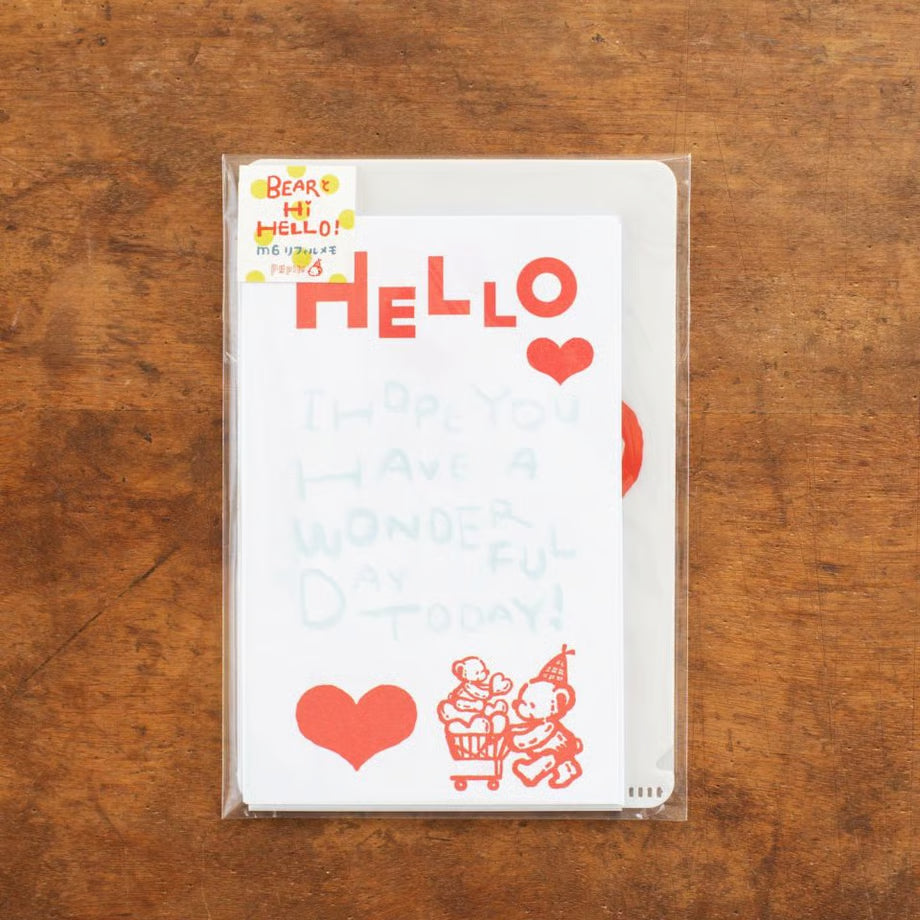 BEARと
Hi
HELLO!
m6 リフィルメモ
PEPIN
HELLO
I HOPE YOU
HAVE A
WONDERFUL
DAY TODAY!